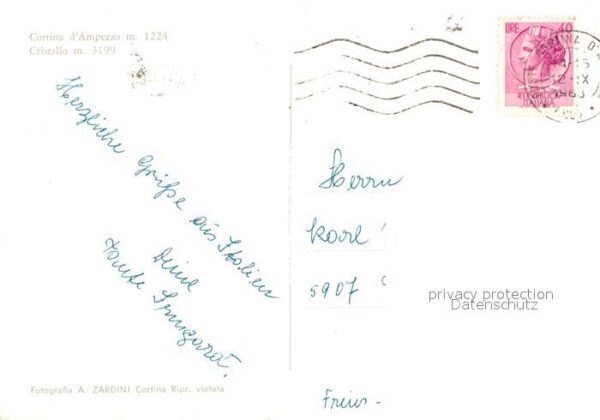 Cortina d'Ampezzo m. 1224
Cristallo m. 3199
Herzliche Grüße aus Italien
Deine
Tante
Fotografia A. ZARDINI Cortina Ripr. vietata
LIRE 40
REPUBBLICA
ITALIANA
Herrn
Karl
5907
privacy protection
Datenschutz